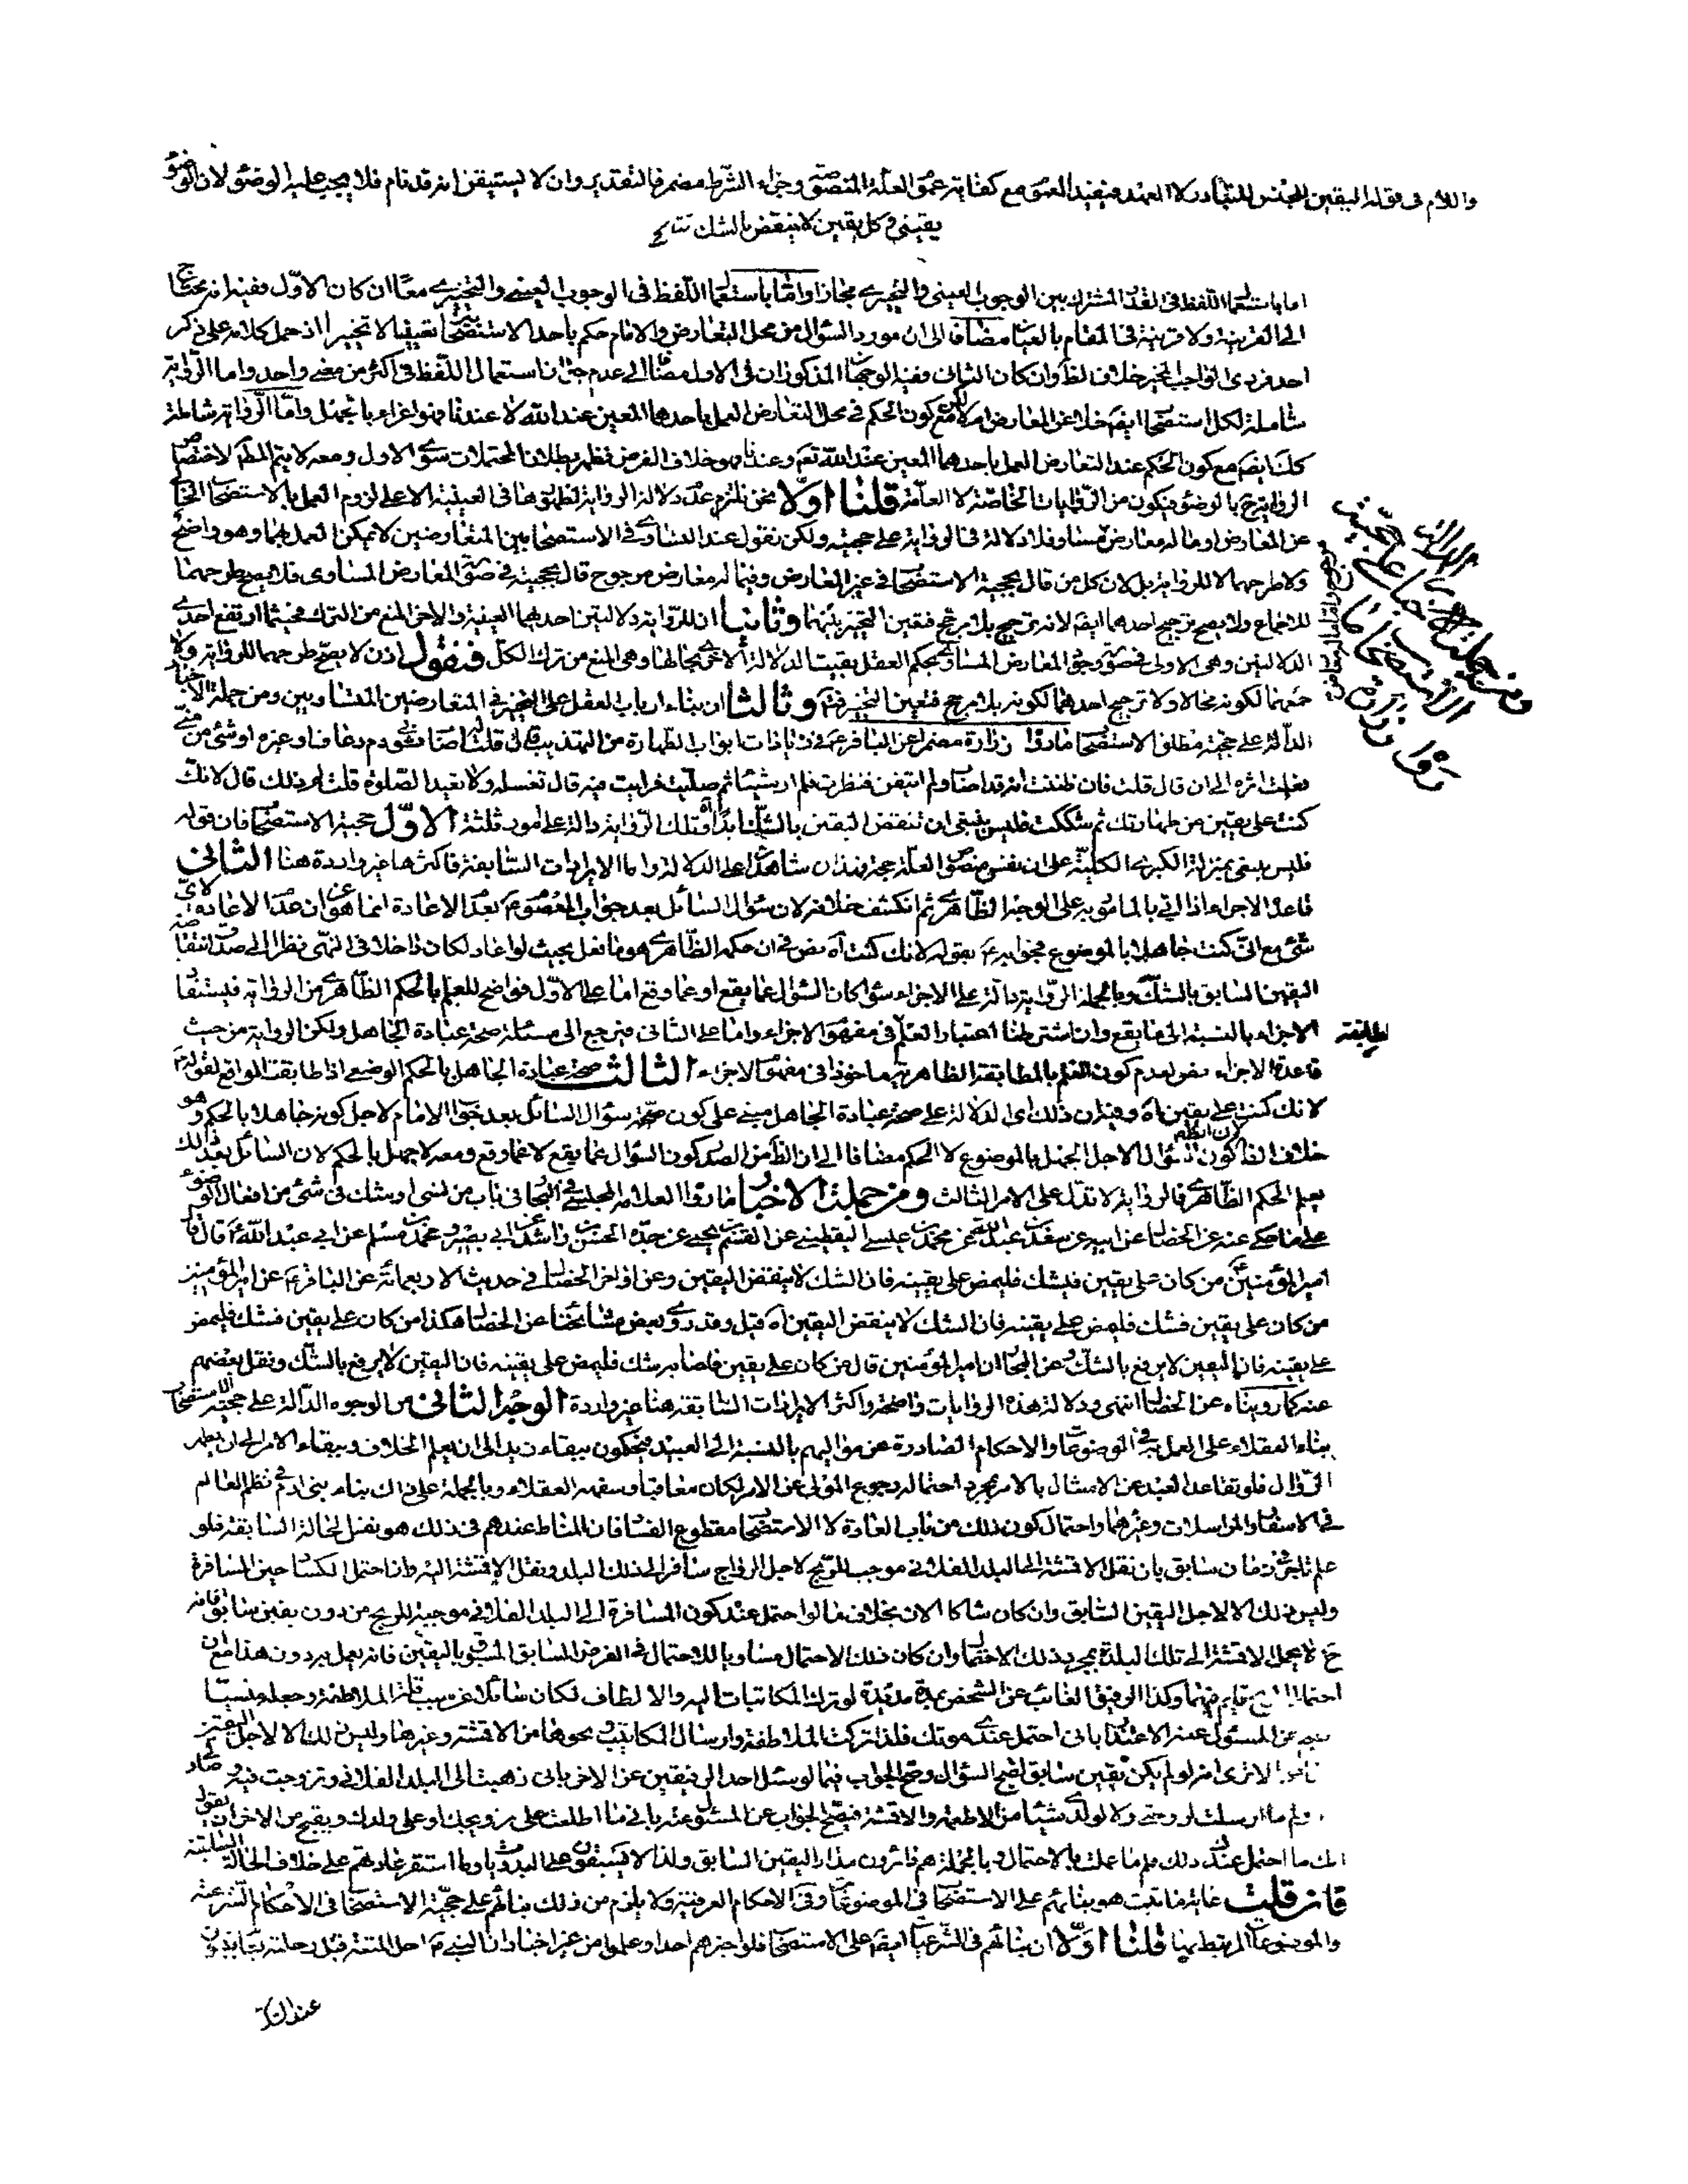 واللام فى قوله اليقين للجنس للتبادر لا العهد فيفيد العموم مع كفاية عموم العلة المنصوصة وجزاء الشرط مضمر فالتقدير وان لا يستيقن انه قد نام فلا يجب عليه الوضوء لان الوضوء
يقينى وكل يقين لا ينقض بالشك
اما باستعمال اللفظ فى القدر المشترك بين الوجوب العينى والتخييرى مجازا واما باستعمال اللفظ فى الوجوب العينى والتخييرى معا ان كان الاول ففيه انه محتاج
الى القرينة ولا قرينة فى المقام بالعيان مضافا الى ان مورد السؤال من محل التعارض والامام حكم باحد الاستصحابين تعيينا لا تخييرا اذ حمل كلامه على ذكر
احد فردى الواجب المخير خلاف الظ وان كان الثانى ففيه الوجهان المذكوران فى الاول مضافا الى عدم جواز استعمال اللفظ فى اكثر من معنى واحد واما الرواية
شاملة لكل استصحاب ايضا خلا عن المعارض ام لا لكن مع كون الحكم فى محل التعارض العمل باحدهما المعين عند الله لا عندنا فهو اغراء بالجهل واما الرواية شاملة
كك ايضا مع كون الحكم عند التعارض العمل باحدهما المعين عند الله تع وعندنا فهو خلاف الفرض فظهر بطلان المحتملات سوى الاول ومعه لا يتم المط لاختصاص
الرواية ح بالوضوء فيكون من الروايات الخاصة لا العامة قلنا اولا نحن نلتزم عدم دلالة الرواية لظهورها فى العينية الا على لزوم العمل بالاستصحاب الخالى
عن المعارض او ما له معارض مساو فلا دلالة فى الرواية على حجيته ولكن نقول عند التساوى فى الاستصحابين المتعارضين لا يمكن العمل بهما وهو واضح
ولا طرحهما لا للرواية بل لان كل من قال بحجية الاستصحاب فى غير المعارض وفيما له معارض مرجوح قال بحجيته فى صورة المعارض المساوى فلا يصح طرحهما
للاجماع ولا يصح ترجيح احدهما ايضا لانه ترجيح بلا مرجح فتعين التخيير بينهما وثانيا ان للرواية دلالتين احدهما العينية والاخر المنع من الترك فحيثما ارتفع احدى
الدلالتين وهى الاولى فى صورة وجود المعارض المساوى بحكم العقل بقيت الدلالة الاخرى بحالها وهى المنع من ترك الكل فنقول اذن لا يصح طرحهما للرواية ولا
جمعهما لكونه محالا ولا ترجيح احدهما لكونه بلا مرجح فتعين التخيير فتم وثالثا ان بناء ارباب العقل على التخيير فى المتعارضين المتساويين ومن جملة الاخبار
الدالة على حجية مطلق الاستصحاب مارواه زرارة مضمرا عن الباقر ع فى زيادات ابواب الطهارة من التهذيب قال قلت اصاب ثوبى دم رعاف او غيره او شئ من منى
فعلمت اثره الى ان قال قلت فان ظننت انه قد اصابه ولم اتيقن فنظرت فلم ار شيئا ثم صليت فرايت فيه قال تغسله ولا تعيد الصلوة قلت لم ذلك قال لانك
كنت على يقين من طهارتك ثم شككت فليس ينبغى ان تنقض اليقين بالشك ابدا وتلك الرواية دالة على امور ثلثة الاول حجية الاستصحاب فان قوله
فليس ينبغى بمنزلة الكبرى الكلية على ان نفس منصوص العلة حجة وبذان شاهدا على الدلالة واما الايرادات السابقة فاكثرها غير واردة هنا الثانى
قاعدة الاجزاء اذا اتى بالمامور به على الوجه الظاهرى ثم انكشف خلافه لان سؤال السائل بعد جواب المعصوم ع بعدم الاعادة انما هو عن ان عدم الاعادة لاى
شئ مع انى كنت جاهلا بالموضوع فجوابه ع بقوله لانك كنت اه نص فى ان حكمه الظاهرى هو ما فعل بحيث لو اعاد لكان داخلا فى النهى نظرا الى صدق انتقاض
اليقين السابق بالشك وبالجملة الرواية دالة على الاجزاء سواء كان السؤال عما يقع او عما وقع اما على الاول فواضح للعلم بالحكم الظاهرى من الرواية فيستفاد
الاجزاء بالنسبة الى ما يقع وان اشترطنا اعتبار العلم فى مفهوم الاجزاء واما على الثانى فيرجع الى مسئلة صحة عبادة الجاهل ولكن الرواية من حيث
قاعدة الاجزاء نص لعدم كون العلم بالمطابقة الظاهرية ماخوذا فى مفهوم الاجزاء الثالث صحة عبادة الجاهل بالحكم الوضعى اذا طابقت الواقع لقوله ع
لانك كنت على يقين اه وفيه ان ذلك اى الدلالة على صحة عبادة الجاهل مبنى على كون سؤال السائل بعد جواب الامام لاجل كونه جاهلا بالحكم وهو
خلاف الظ لان الظ كون السؤال لاجل الجهل بالموضوع لا الحكم مضافا الى ان الظ من الصدر كون السؤال عما يقع لا عما وقع ومعه لا جهل بالحكم لان السائل بعد ذلك
يعلم الحكم الظاهرى فالرواية لا تدل على الامر الثالث ومن جملة الاخبار مارواه العلامة المجلسى فى البحار فى باب من نسى او شك فى شئ من افعال الوضوء
على ما حكى عنه عن الخصال عن ابيه عن سعد بن عبد الله عن محمد بن عيسى اليقطينى عن القسم بن يحيى عن جده الحسن بن راشد عن ابى بصير ومحمد بن مسلم عن ابى عبد الله ع قال قال
امير المؤمنين ع من كان على يقين فشك فليمض على يقينه فان الشك لا ينقض اليقين وعن اواخر الخصال فى حديث الاربعمائة عن الباقر ع عن امير المؤمنين
من كان على يقين فشك فليمض على يقينه فان الشك لا ينقض اليقين اه قيل وقد روى بعض مشايخنا عن الخصال هكذا من كان على يقين فشك فليمض
على يقينه فان اليقين لا يرفع بالشك وعن البحار ان امير المؤمنين قال من كان على يقين فاصابه شك فليمض على يقينه فان اليقين لا يرفع بالشك ونقل بعضهم
عنه كما رويناه عن الخصال انتهى ودلالة هذه الروايات واضحة واكثر الايرادات السابقة هنا غير واردة الوجه الثانى من الوجوه الدالة على حجية الاستصحاب
بناء العقلاء على العمل به فى الموضوعات والاحكام الصادرة عن مواليهم بالنسبة الى العبيد فيحكمون ببقاء زيد الى ان يعلم الخلاف وببقاء الامر الى ان يظهر
الزوال فلو تقاعد العبد عن الامتثال بالامر بمجرد احتمال رجوع المولى عن الامر لكان معاقبا وسفهه العقلاء وبالجملة على ذلك بناء بنى ادم فى نظم العالم
فى الاسفار والمراسلات وغيرهما واحتمال كون ذلك من باب العادة لا الاستصحاب مقطوع الفساد فان المناط عندهم فى ذلك هو نفس الحالة السابقة فلو
علم تاجر فى زمان سابق بان نقل الاقمشة الى البلد الفلانى موجب للربح لاجل الرواج سافر الى ذلك البلد ونقل الاقمشة اليه وان احتمل الكساد حين المسافرة
وليس ذلك الا لاجل اليقين السابق وان كان شاكا الان بخلاف ما لو احتمل عنده كون المسافرة الى البلد الفلانى موجبة للربح من دون يقين سابق فانه
ح لا يحمل الاقمشة الى تلك البلدة بمجرد ذلك الاحتمال وان كان ذلك الاحتمال مساويا للاحتمال فى الفرض السابق المسبوق باليقين فانه يعمل به دون هذا مع ان
احتمال الربح قائم فيهما وكذا الرفيق الغائب عن الشخص بمدة مديدة لو ترك المكاتبات اليه والالطاف لكان سائلا عن سبب قلة الملاطفة وجعله منسيا
عن المسئول عنه الاعتذار بانى احتمل عندى موتك فلذا تركت الملاطفة وارسال المكاتيب ونحوها من الاقمشة وغيرها وليس ذلك الا لاجل اليقين
الا ترى انه لو لم يكن يقين سابق لقبح السؤال وصح الجواب فيما لو سئل احد الرفيقين عن الاخر بانى ذهبت الى البلد الفلانى وتزوجت فيه وصار
ولم ما ارسلت لزوجتى ولا لولدى شيئا من الاطعمة والاقمشة فيصح الجواب عن المسئول عنه بانى ما اطلعت على تزويجك او على ولدك ويقبح من الاخر ان يقول
ما احتمل عندك ذلك فلم ما عملت بالاحتمال وبالجملة هم دائرون مدار اليقين السابق ولذا لا يستنقون على البدء بامر ما استقر عادتهم على خلاف الحالة السابقة
فان قلت غاية ما ثبت هو بنائهم على الاستصحاب فى الموضوعات وفى الاحكام العرفية ولا يلزم من ذلك بنائهم على حجية الاستصحاب فى الاحكام الشرعية
والموضوعات المرتبط بها قلنا اولا ان بنائهم فى الشرعيات ايضا على الاستصحاب فلو اخبرهم احد او علموا من غير اخبار ان النبى ص احل المتعة قبل رحلته